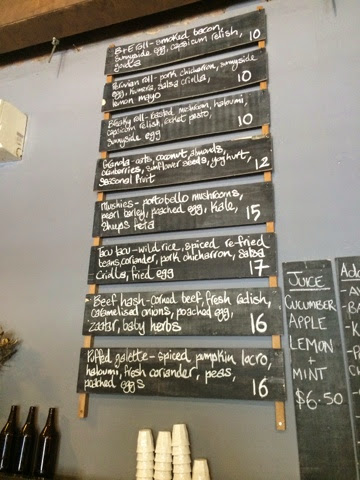 B+E roll - smoked bacon,
sunnyside egg, capsicum relish,
gouda 10
Peruvian roll - pork chicharron, sunnyside
egg, kumera, salsa criolla,
lemon mayo 10
Breaky roll - roasted mushroom, haloumi,
capsicum relish, rocket pesto,
sunnyside egg 10
Granola - oats, coconut, almonds,
cranberries, sunflower seeds, yoghurt,
seasonal fruit 12
Mushies - portobello mushrooms,
pearl barley, poached egg, kale,
sheeps feta 15
Tacu tacu - wild rice, spiced re-fried
beans, coriander, pork chicharron, salsa
criolla, fried egg 17
Beef hash - corned beef, fresh radish,
caramelised onions, poached egg,
zaatar, baby herbs 16
Puffed galette - spiced pumpkin locro,
haloumi, fresh coriander, peas,
poached eggs 16
JUICE
CUCUMBER
APPLE
LEMON
+
MINT
$6.50